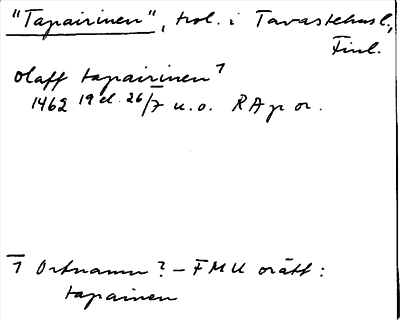 "Tapairinen", trol. i Tavastehusl,
Finl.
Olaff tapairinen 1
1462 19 el. 26/7 u.o. RAp or.
1 Ortnamn? - FMU orätt:
tapainen